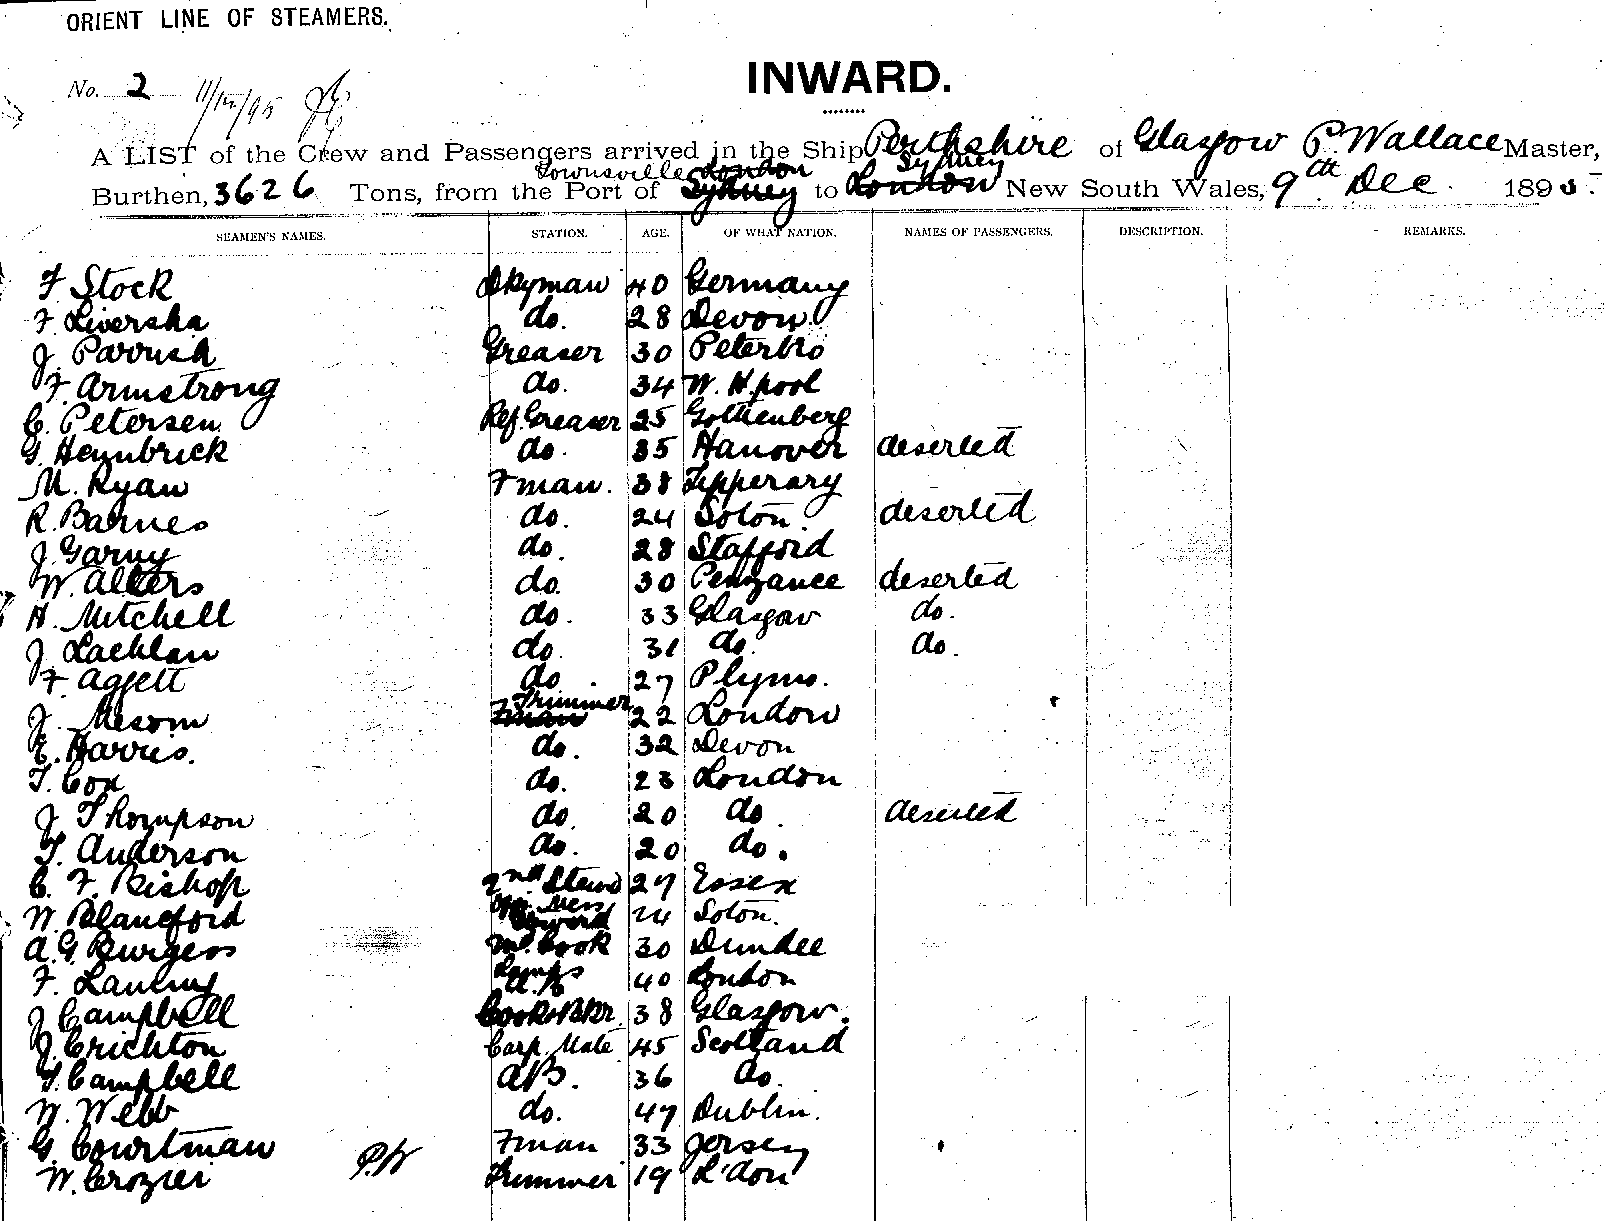 ORIENT LINE OF STEAMERS.
No. 2 11/12/95
INWARD.
A LIST of the Crew and Passengers arrived in the Ship Perthshire of Glasgow P. Wallace Master,
Townsville London Sydney
Burthen, 3626 Tons, from the Port of Sydney to London New South Wales, 9th Dec. 1895.
SEAMEN'S NAMES. STATION. AGE. OF WHAT NATION. NAMES OF PASSENGERS. DESCRIPTION. REMARKS.
F Stock Dkyman 40 Germany
F. Liversha do. 28 Devon
J. Parrish Greaser 30 Peterbro
F. Armstrong do. 34 W. H.pool
C. Petersen Ref. Greaser 25 Gothenberg
G. Heynbrick do. 35 Hanover deserted
M. Ryan Fman. 38 Tipperary
R. Barnes do. 24 Soton. deserted
J. Garvy do. 28 Stafford
W. Alters do. 30 Penzance deserted
H. Mitchell do. 33 Glasgow do.
J. Lachlan do. 31 do. do.
F. Aggett do. 27 Plymo.
Trimmer
J. Mesom Fman 22 London
E. Harris. do. 32 Devon
T. Cox do. 23 London
J Thompson do. 20 do. deserted
T. Anderson do. 20 do.
C. F. Bishop 2nd Stewd 27 Essex
W. Blandford Mess Steward 24 Soton.
A. G. Burgess Cook 30 Dundee
F. Lanimy Lamps A.B. 40 London
J Campbell Cook & Bkr. 38 Glasgow.
J. Crichton Carp. Mate 45 Scotland
T. Campbell AB. 36 do.
W. Webb do. 47 Dublin.
G. Courtman Fman 33 Jersey
W. Crozier P.W Trimmer 19 L'don